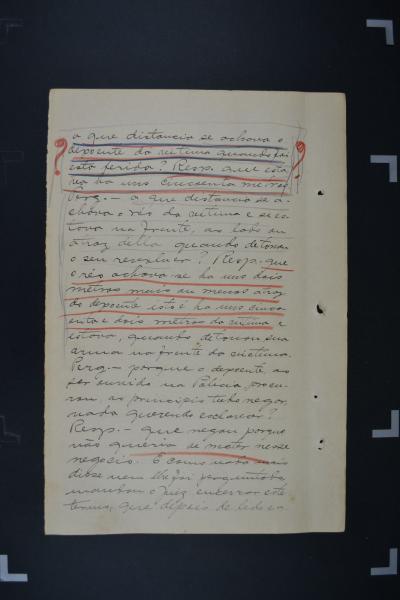 a que distancia se achava o
depoente da victima quando foi
esta ferida? Resp. que esta-
va ha uns cincoenta metros
Perg.— a que distancia se a-
chava o réo da victima e se es-
tava na frente, ao lado ou
atraz della quando detonou
o seu revolver? Resp. que
o réo achava-se ha uns dois
metros mais ou menos atraz
do depoente isto é ha uns cinco-
enta e dois metros da victima e
estava, quando detonou sua
arma na frente da victima.
Perg.— porque o depoente ao
ser ouvido na Policia procu-
rou, ao principio tudo negar,
nada querendo esclarecer?
Resp.— que negou porque
não queria se meter nesse
negocio. E como nada mais
disse nem lhe foi perguntado
mandou o Juiz encerrar este
termo, que depois de lido e